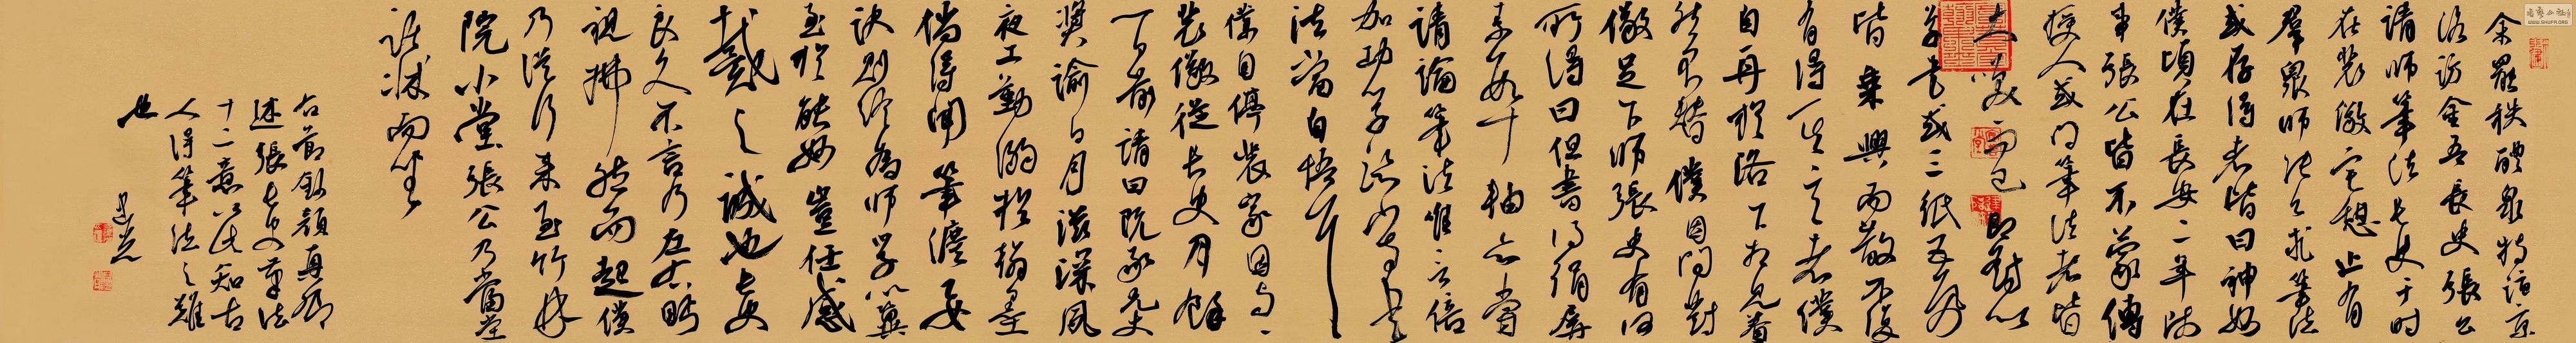 余罷秩醴泉特詣京
洛訪金吾長史張公
請師筆法長史于時
在裴儆宅憩止有
羣眾師張公求筆法
或存得者皆曰神妙
僕頃在長安二年師
事張公皆不蒙傳
授人或問筆法者皆
大笑而已即對以
草書或三紙五紙
皆乘興而散不復
有得其言者僕
自再於洛下相見眷
然不替僕因問
儆足下師張史有何
所得曰但書得絹屏
素數十軸亦嘗
請論筆法唯言倍
加功學臨寫書
法當自悟耳
僕自停裴家因與
裴儆從長史月餘
一日前請曰既承兄丈
獎諭日月滋深夙
夜工勤溺於翰墨
倘得聞筆法要
訣則終為師學以冀
至於能妙豈任感
戴之誠也長史
良久不言乃左右眄
視拂然而起僕
乃從行來至竹林
院小堂張公乃當堂
踞床而坐
右節錄顏真卿
述張長史草法
十二意以此知古
人得筆法之難
也